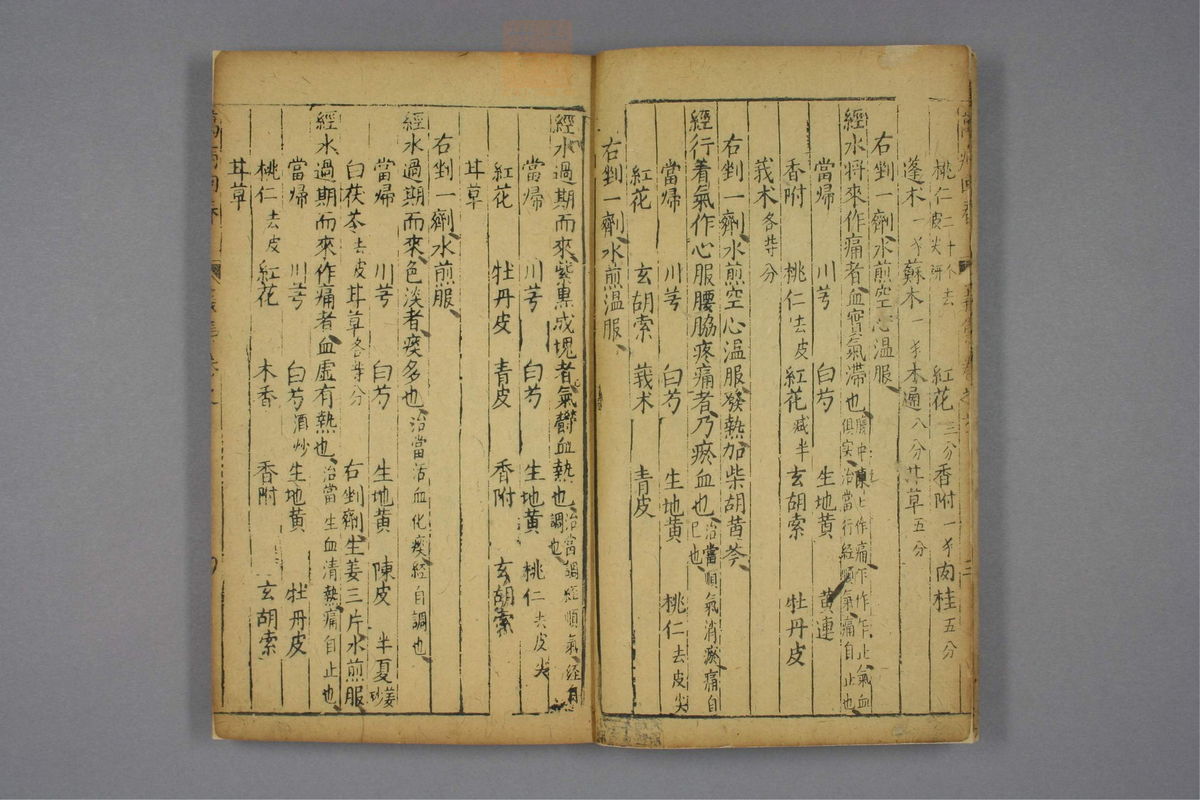 桃仁二十个去皮尖研 紅花三分 香附一錢 肉桂五分
蓬木一錢 蘇木一錢 木通八分 甘草五分
右剉一劑水煎空心溫服
經水將來作痛者血實氣滯也腹中陳上作痛乍作乍止氣血俱实治當行經順氣痛自止也
當歸 川芎 白芍 生地黄 黄連
香附 桃仁去皮 紅花减半 玄胡索 牡丹皮
莪术各等分
右剉一劑水煎空心温服發熱加柴胡黄芩
經行着氣作心服腰脇疼痛者乃瘀血也治當順氣消瘀痛自已也
當歸 川芎 白芍 生地黄 桃仁去皮尖
紅花 玄胡索 莪术 青皮
右剉一劑水煎温服
經水過期而來紫黒成塊者氣欝血熱也治當調經順氣經自調也
當歸 川芎 白芍 生地黄 桃仁去皮尖
紅花 牡丹皮 青皮 香附 玄胡索
甘草
右剉一劑水煎服
經水過期而來色淡者痰多也治當活血化痰經自調也
當歸 川芎 白芍 生地黄 陳皮 半夏姜炒
白茯苓去皮 甘草各等分 右剉劑生姜三片水煎服
經水過期而來作痛者血虚有熱也治當生血清熱痛自止也
當歸 川芎 白芍酒炒 生地黄 牡丹皮
桃仁去皮 紅花 木香 香附 玄胡索
甘草